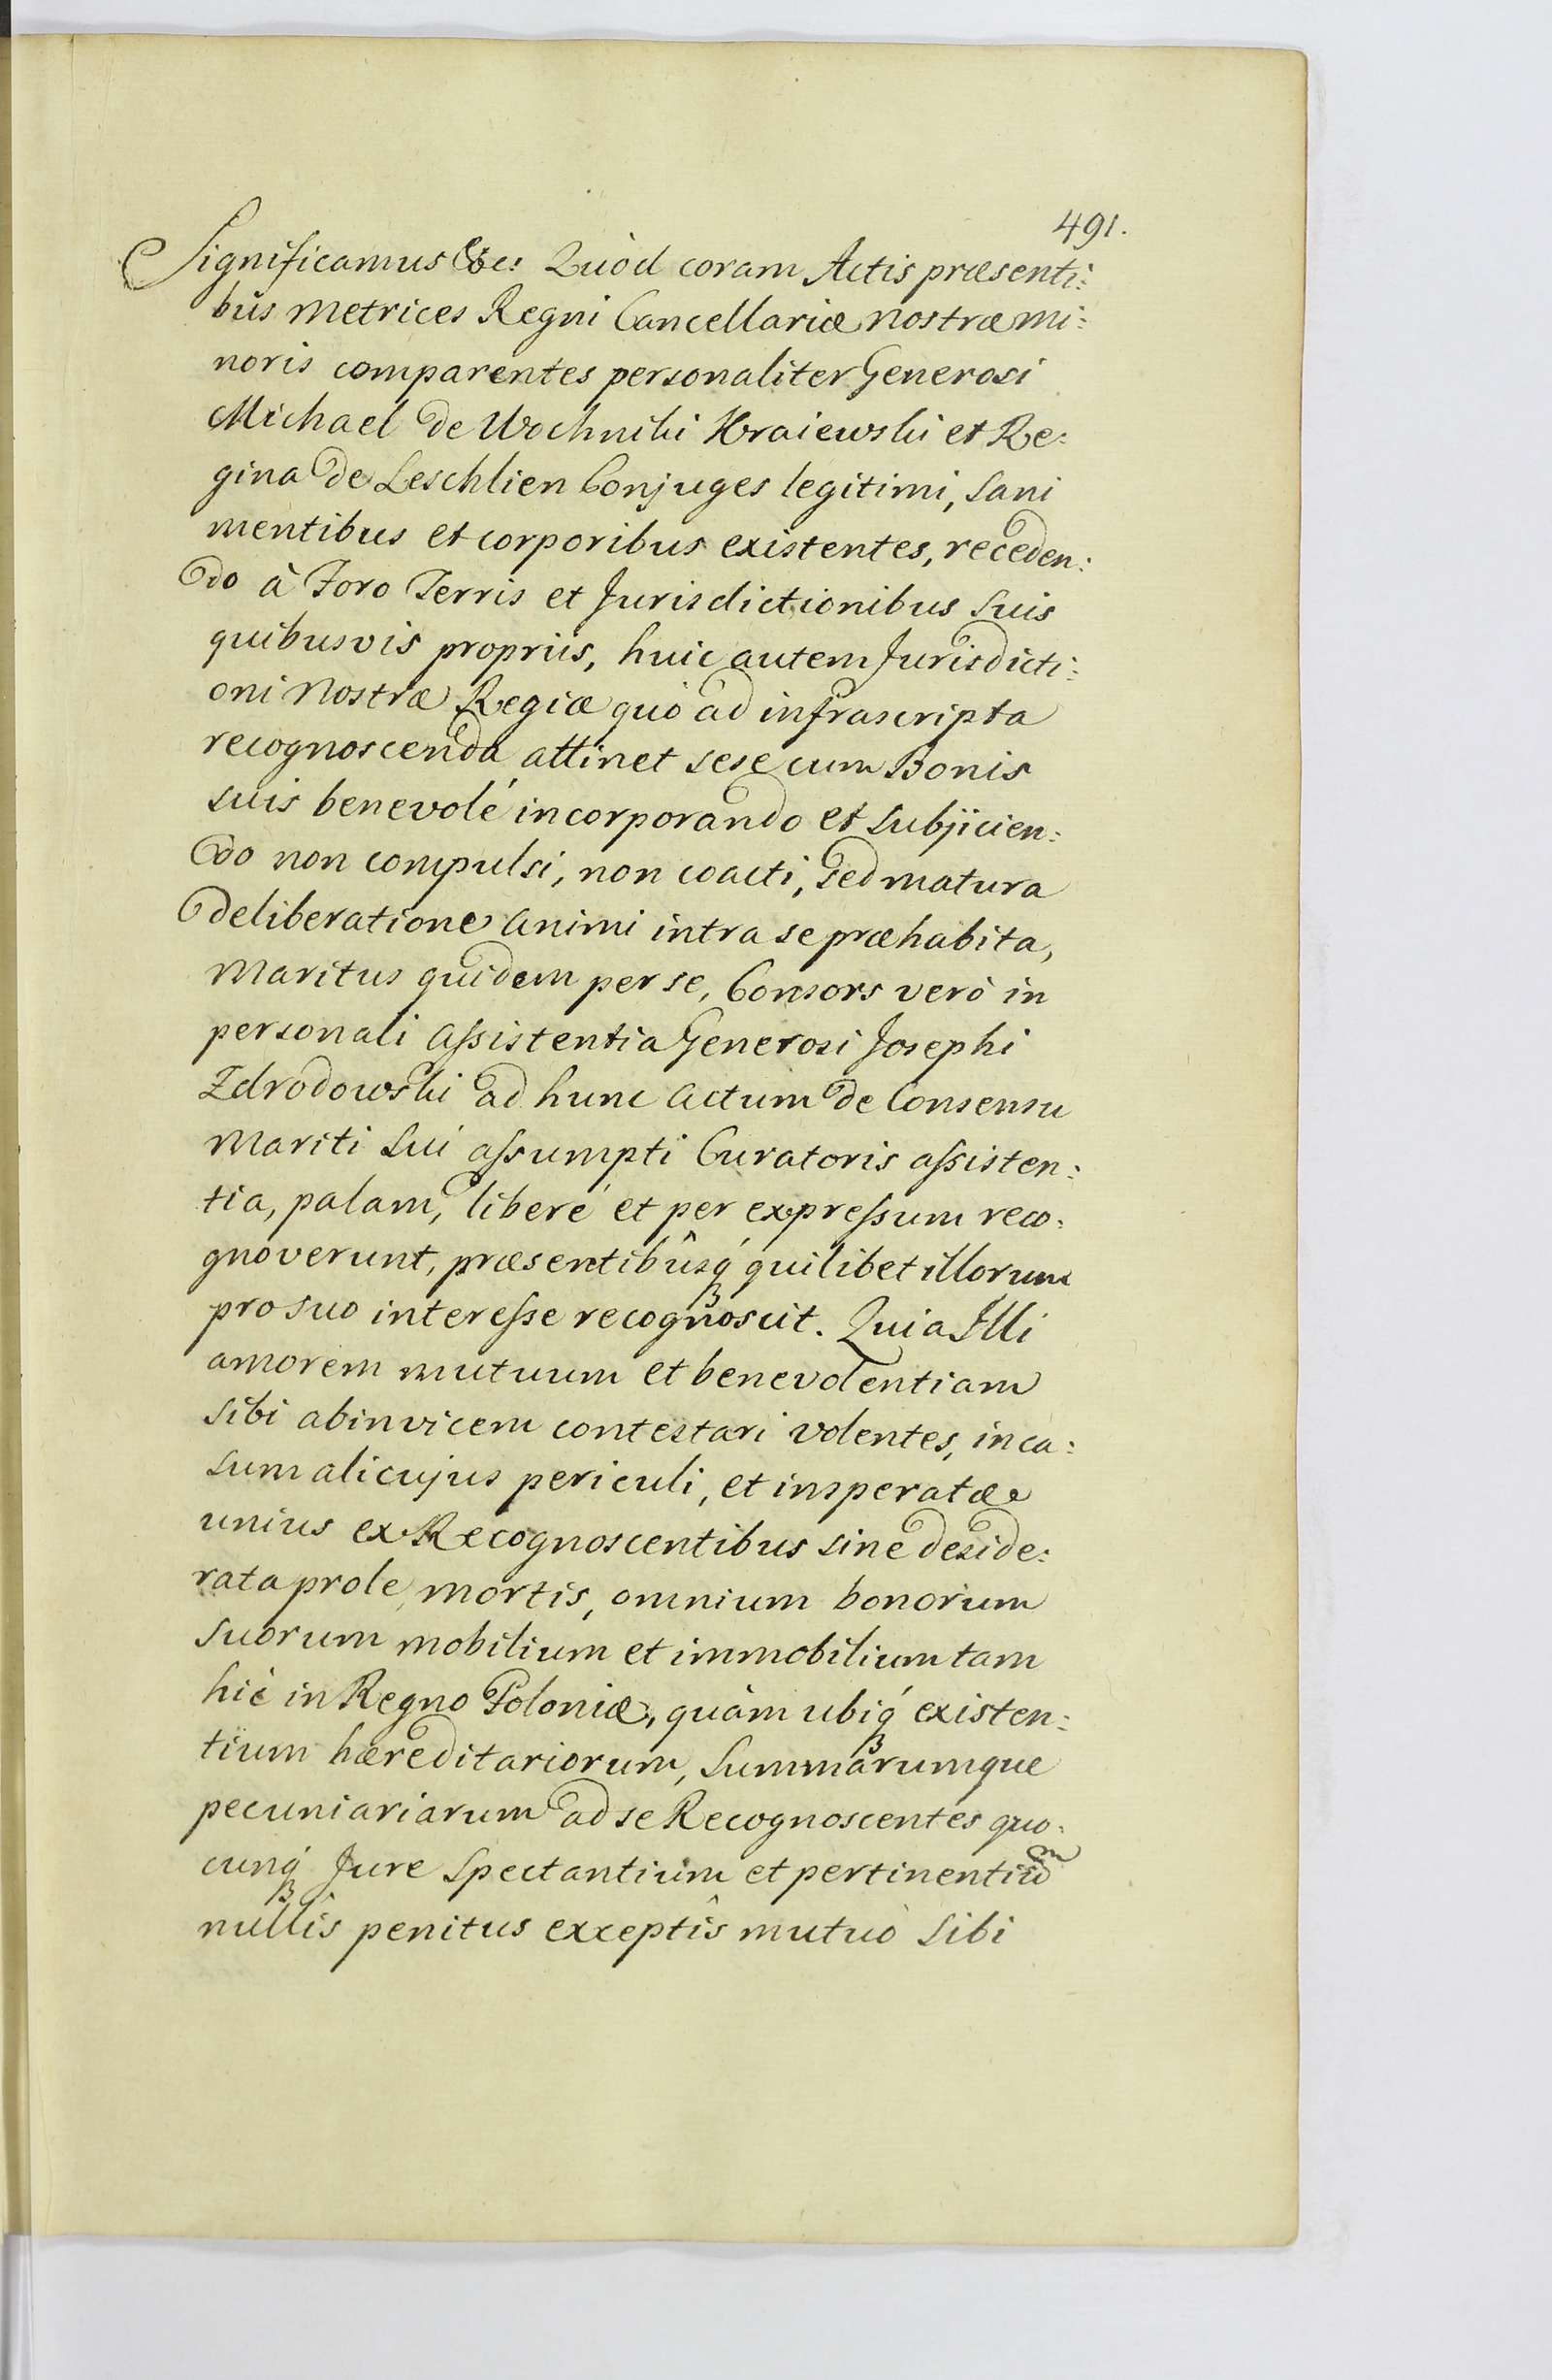 491.
Significamus &c: Quòd coram Actis præsenti:
bus Metrices Regni Cancellariæ Nostræ Mi:
noris comparentes personaliter Generosi
Michael de Wochniki Kraiewski et Re:
gina de Leschlien Conjuges legitimi, Sani
mentibus et corporibus existentes, receden:
do à Foro Terris et Jurisdictionibus Suis
quibusvis proprijs, huic autem Jurisdicti:
oni Nostræ Regiæ quò ad infrascripta
recognoscenda attinet sese cum Bonis
suis benevolé incorporando et Subjicien:
do non compulsi, non coacti, sed matura
deliberatione animi intra se præhabita,
Maritus quidem per se, Consors verò in
personali assistentia Generosi Josephi
Zdrodowski ad hunc Actum de Consensu
Mariti Sui assumpti Curatoris assisten:
tia, palam, liberé et per expressum reco:
gnoverunt, præsentibûsq́ quilibet illorum
pro suo interesse recognoscit. Quia Illi
amorem mutuum et benevolentiam
sibi abinvicem contestari volentes, in ca:
sum alicujus periculi, et insperatæ
unius ex Recognoscentibus sine deside:
rata prole mortis, omnium bonorum
Suorum mobilium et immobilium tam
hic in Regno Poloniæ, quàm ubiq́ existen:
tium hæreditariorum, Summarumque
pecuniariarum ad se Recognoscentes quo:
cunq́ Jure Spectantium et pertinentium
nullîs penitus exceptîs mutuò Sibi